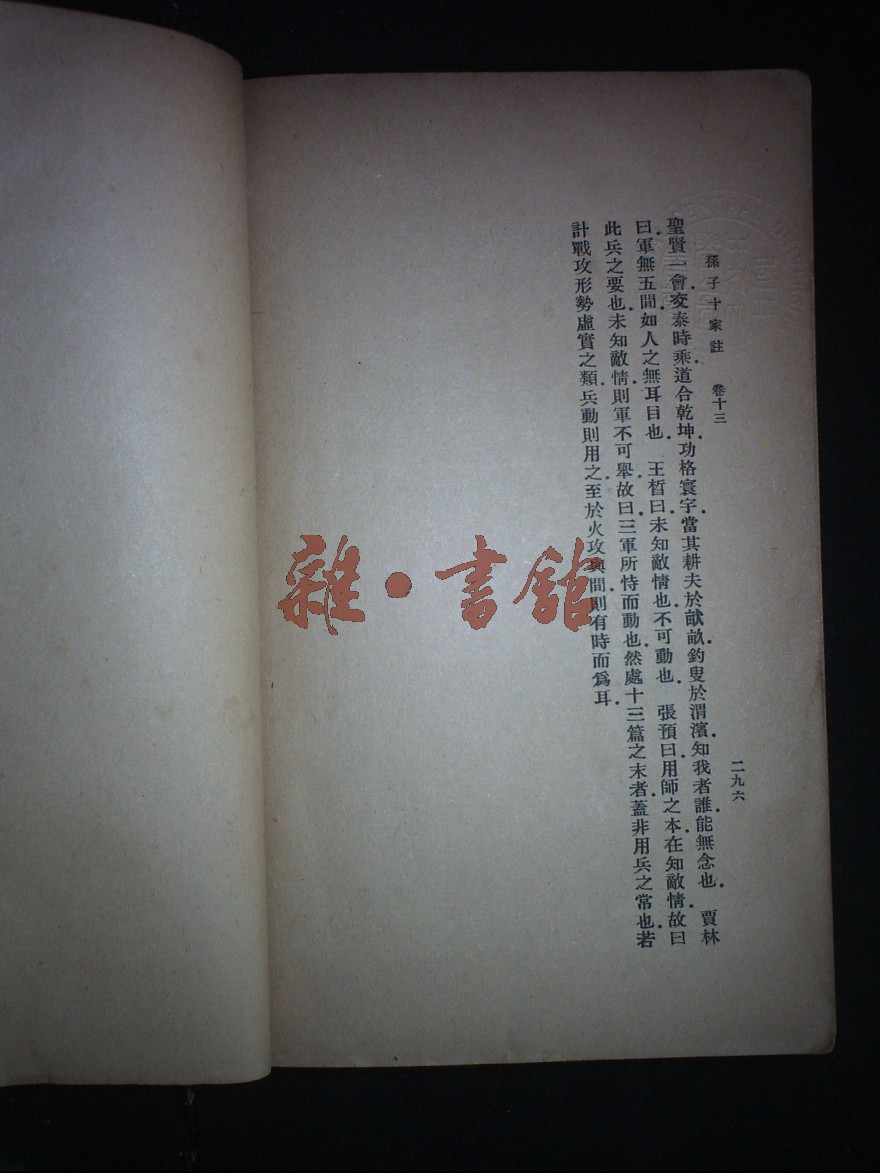 孫子十家註 卷十三 二九六
聖賢一會．交泰時乘．道合乾坤．功格寰宇．當其耕夫於畎畝．釣叟於渭濱．知我者誰．能無念也． 賈林
曰．軍無五間．如人之無耳目也． 王皙曰．未知敵情也．不可動也． 張預曰．用師之本．在知敵情．故曰
此兵之要也．未知敵情．則軍不可舉．故曰．三軍所恃而動也．然處十三篇之末者．蓋非用兵之常也．若
計戰攻形勢虛實之類．兵動則用之．至於火攻與間．則有時而爲耳．
雜・書館